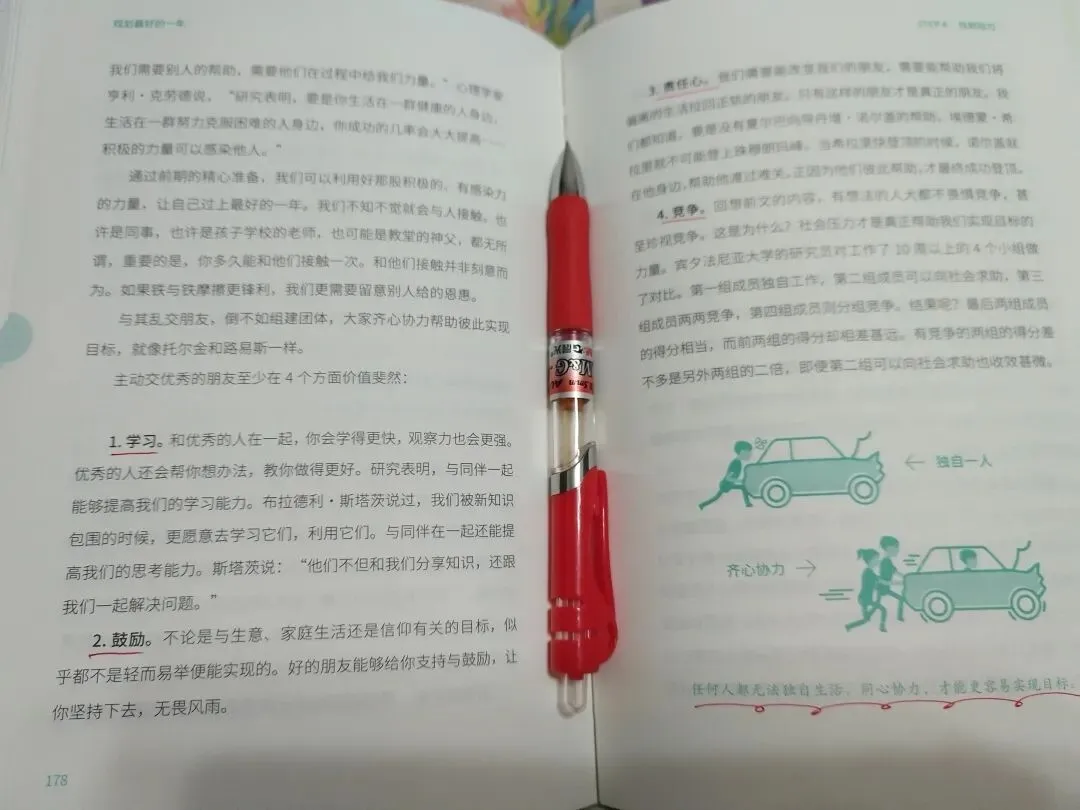 规划最好的一年
我们需要别人的帮助，需要他们在过程中给我们力量。”心理学家
亨利·克劳德说，“研究表明，要是你生活在一群健康的人身边，
生活在一群努力克服困难的人身边，你成功的几率会大大提高……
积极的力量可以感染他人。”
通过前期的精心准备，我们可以利用好那股积极的、有感染力
的力量，让自己过上最好的一年。我们不知不觉就会与人接触，也
许是同事，也许是孩子学校的老师，也可能是教堂的神父，都无所
谓，重要的是，你多久能和他们接触一次。和他们接触并非刻意而
为。如果铁与铁摩擦更锋利，我们更需要留意别人给的恩惠。
与其乱交朋友，倒不如组建团体，大家齐心协力帮助彼此实现
目标，就像托尔金和路易斯一样。
主动交优秀的朋友至少在4个方面价值斐然：
1. 学习。和优秀的人在一起，你会学得更快，观察力也会更强。
优秀的人还会帮你想办法，教你做得更好。研究表明，与同伴一起
能够提高我们的学习能力。布拉德利·斯塔茨说过，我们被新知识
包围的时候，更愿意去学习它们，利用它们。与同伴在一起还能提
高我们的思考能力。斯塔茨说：“他们不但和我们分享知识，还跟
我们一起解决问题。”
2. 鼓励。不论是与生意、家庭生活还是信仰有关的目标，似
乎都不是轻而易举便能实现的。好的朋友能够给你支持与鼓励，让
你坚持下去，无畏风雨。
178
3. 责任心。我们需要能改变我们的朋友，需要能帮助我们将
偏离的生活拉回正轨的朋友。只有这样的朋友才是真正的朋友。我
们都知道，要是没有夏尔巴向导丹增·诺尔基的帮助，埃德蒙·希
拉里就不可能登上珠穆朗玛峰。当希拉里快登顶的时候，诺尔基就
在他身边，帮助他渡过难关。正因为他们彼此帮助，才最终成功登顶。
4. 竞争。回想前文的内容，有想法的人大都不畏惧竞争，甚
至珍视竞争。这是为什么？社会压力才是真正帮助我们实现目标的
力量。宾夕法尼亚大学的研究员对工作了10周以上的4个小组做
了对比。第一组成员独自工作，第二组成员可以向社会求助，第三
组成员两两竞争，第四组成员则分组竞争。结果呢？最后两组成员
的得分相当，而前两组的得分却相差甚远。有竞争的两组的得分差
不多是另外两组的二倍，即使第二组可以向社会求助也收效甚微。
独自一人
齐心协力
任何人都无法独自生活，同心协力，才能更容易实现目标。
M&G